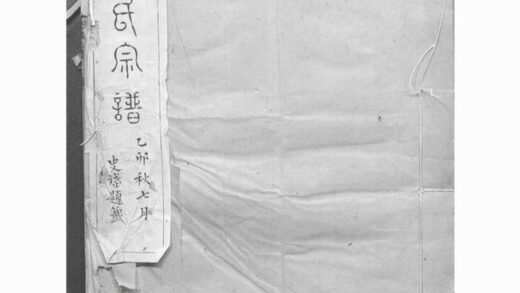 氏宗譜
乙卯秋七月
史
題籤